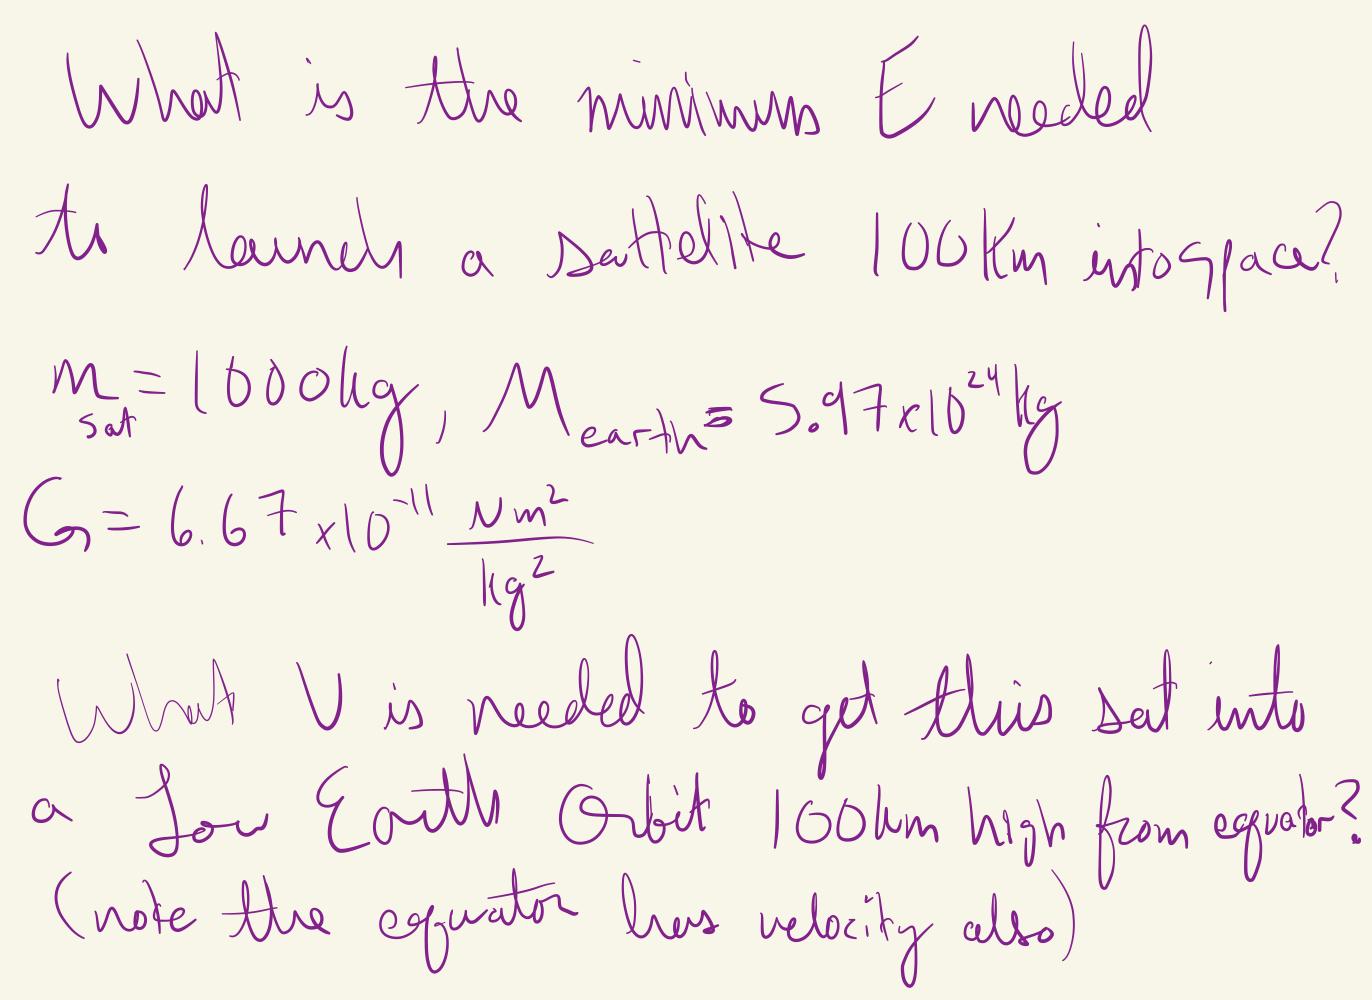 What is the minimum E needed
to launch a sattelite 100km into space?
m_sat = 1000kg, M_earth = 5.97x10^24 kg
G = 6.67 x10^-11 Nm^2/kg^2
What V is needed to get this sat into
a Low Earth Orbit 100km high from equator?
(note the equator has velocity also)